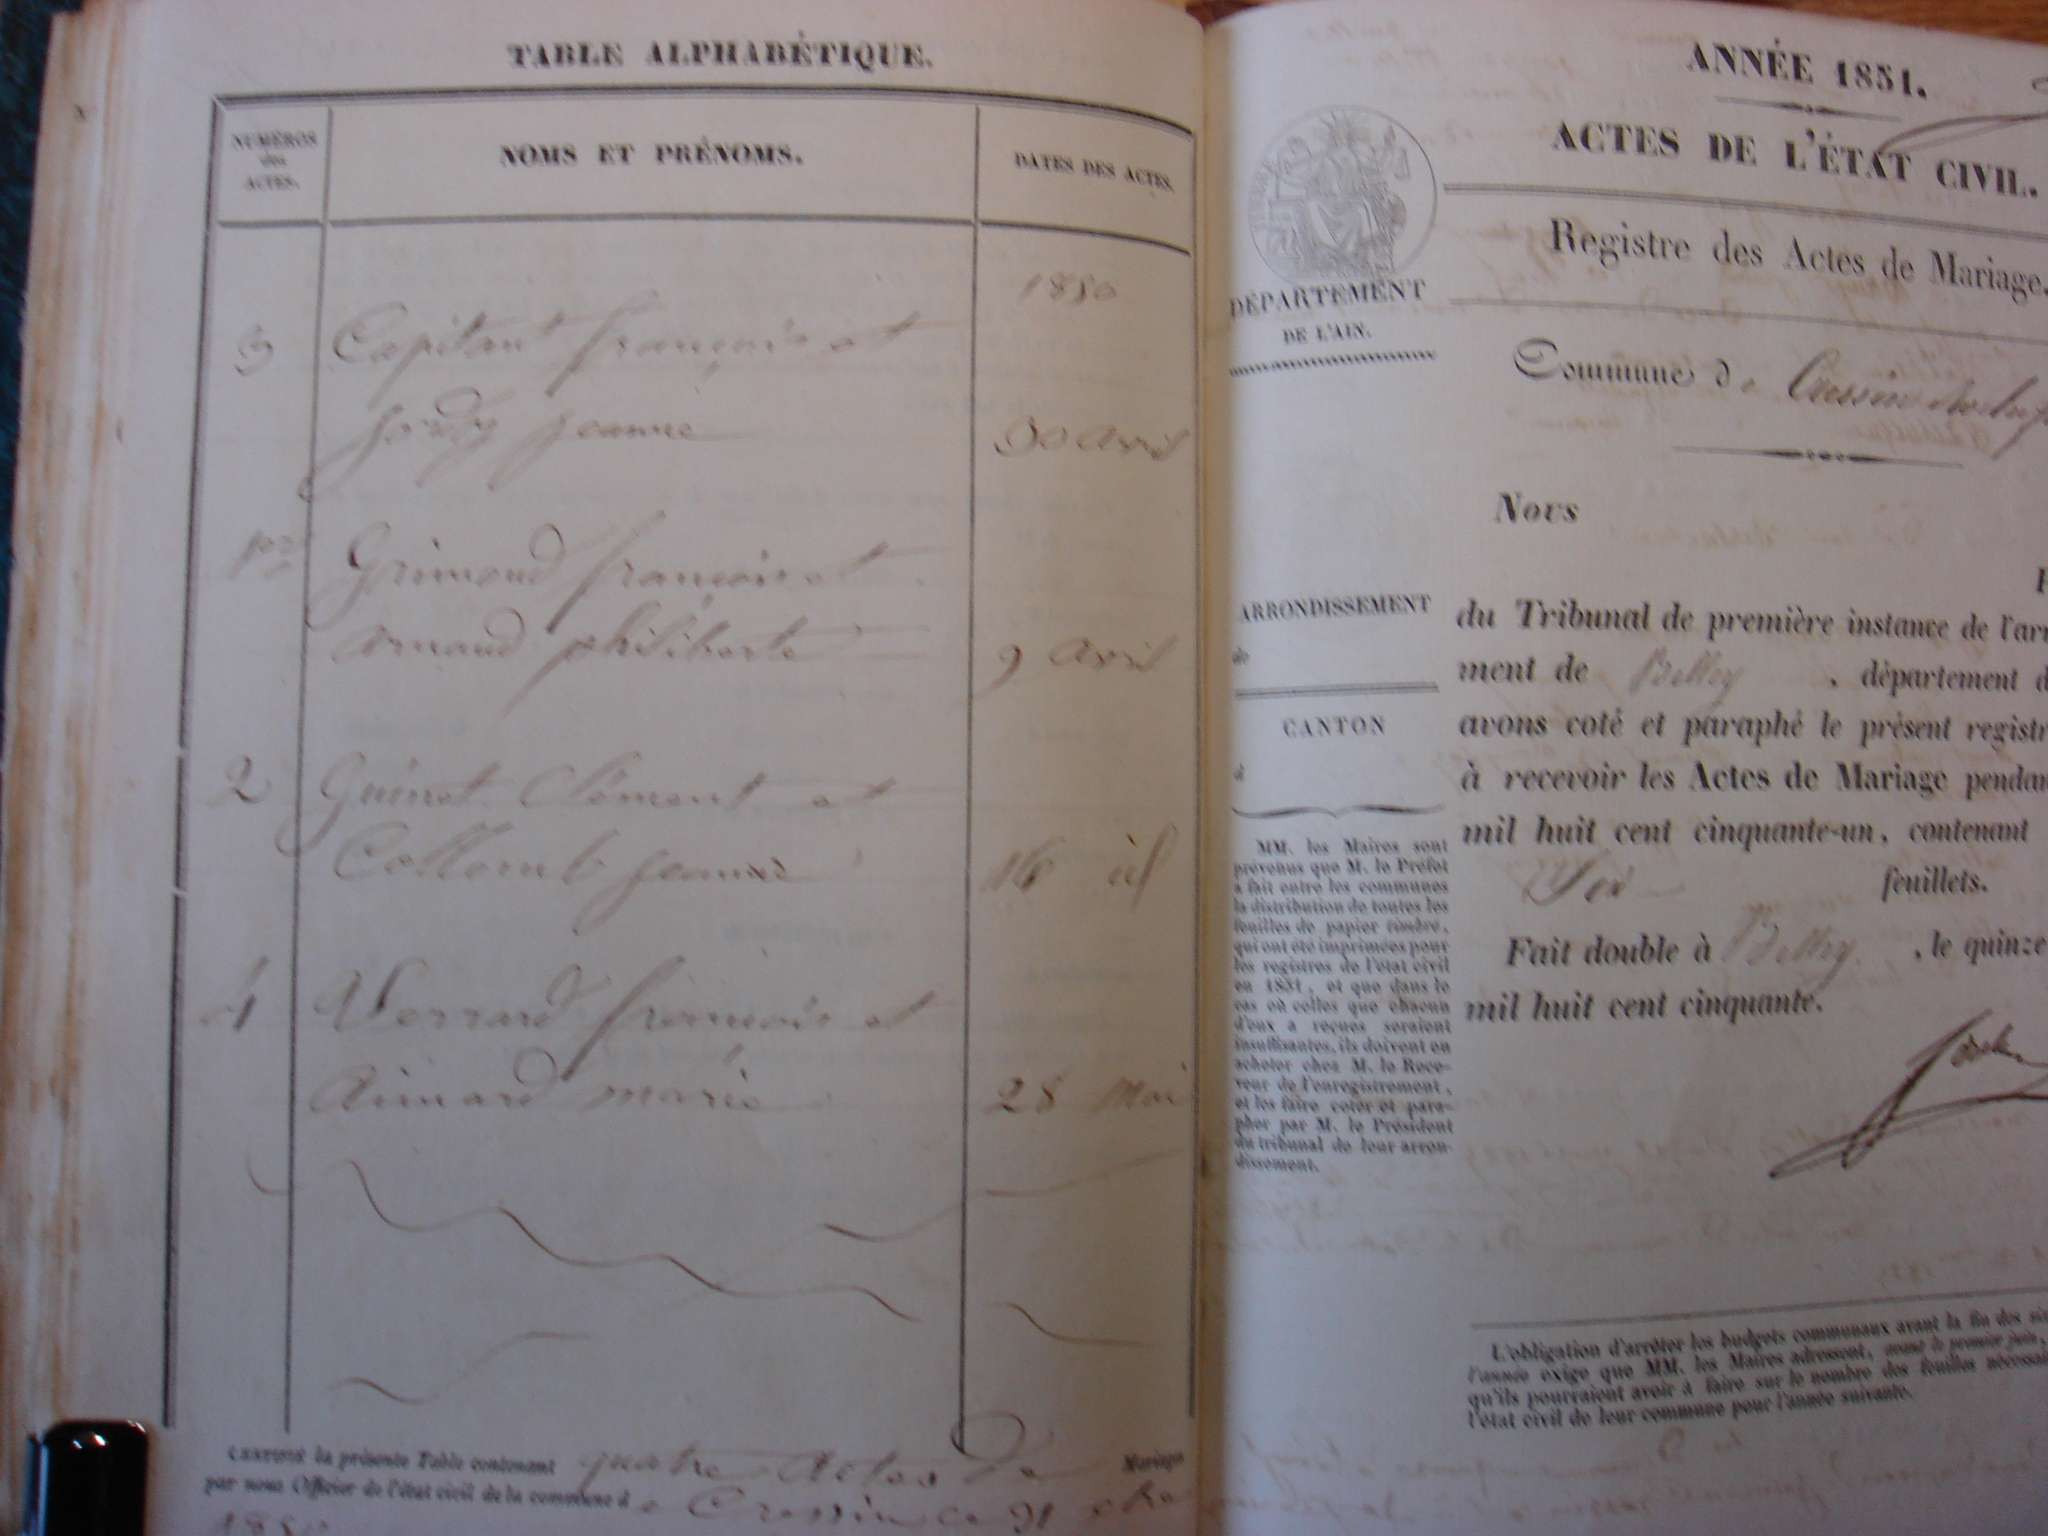 TABLE ALPHABÉTIQUE.
NUMÉROS
des
ACTES.
NOMS ET PRÉNOMS.
DATES DES ACTES.
1850
3 Capitant françois et
Jordy Jeanne 30 avril
1er Grimond françois et
arnaud philiberte 9 avril
2 Guinet Clément et
Collomb Jeanne 16 id
4 Verrard françois et
Aimard marie 28 Mai
CERTIFIÉ la présente Table contenant quatre Actes de Mariage
par nous Officier de l'état civil de la commune de Cressin ce 31 Xbre
1850
ANNÉE 1851.
ACTES DE L'ÉTAT CIVIL.
Registre des Actes de Mariage.
DÉPARTEMENT
DE L'AIN.
Commune de Cressin Rochef
ARRONDISSEMENT
de
CANTON
d
MM. les Maires sont
prévenus que M. le Préfet
a fait entre les communes
la distribution de toutes les
feuilles de papier timbré,
qui ont été imprimées pour
les registres de l'état civil
en 1851, et que dans le
cas où celles que chacun
d'eux a reçues seraient
insuffisantes, ils doivent en
acheter chez M. le Rece-
veur de l'enregistrement,
et les faire coter et para-
pher par M. le Président
du tribunal de leur arron-
dissement.
Nous
du Tribunal de première instance de l'arr
ment de Belley , département d
avons coté et paraphé le présent registr
à recevoir les Actes de Mariage pendan
mil huit cent cinquante-un, contenant
Six feuillets.
Fait double à Belley , le quinze
mil huit cent cinquante.
L'obligation d'arrêter les budgets communaux avant la fin des six
l'année exige que MM. les Maires adressent, avant le premier juin,
qu'ils pourraient avoir à faire sur le nombre des feuilles nécessai
l'état civil de leur commune pour l'année suivante.